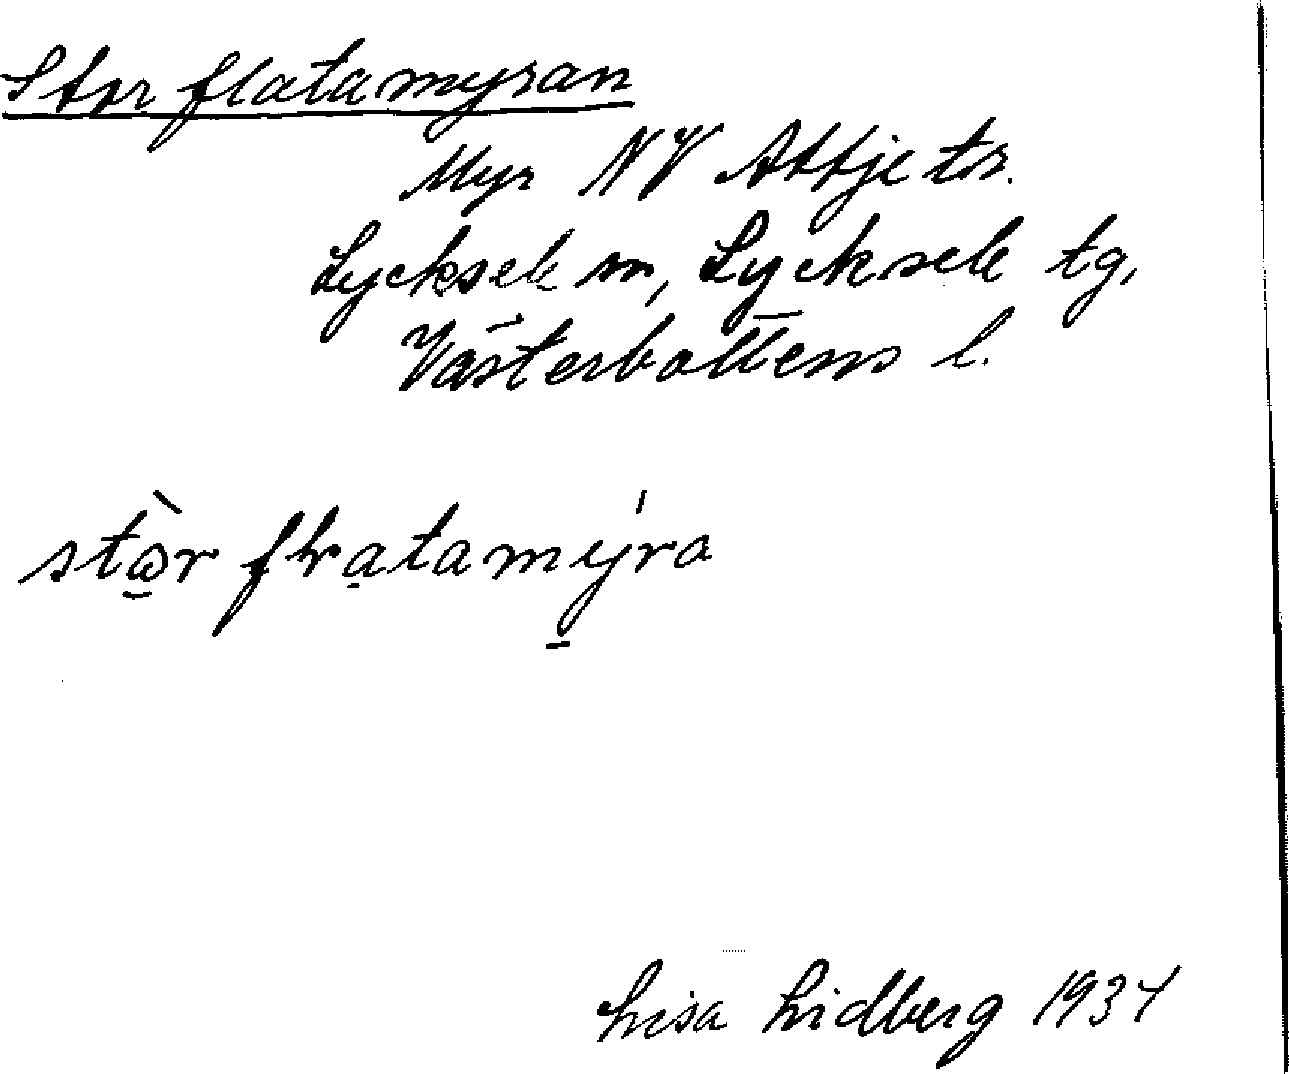 Stor flatamyran
Myr NV Attje tr.
Lycksele sn, Lycksele tg,
Västerbottens l.
stꞷ̀r flratamýra
Lisa Lidberg 1934